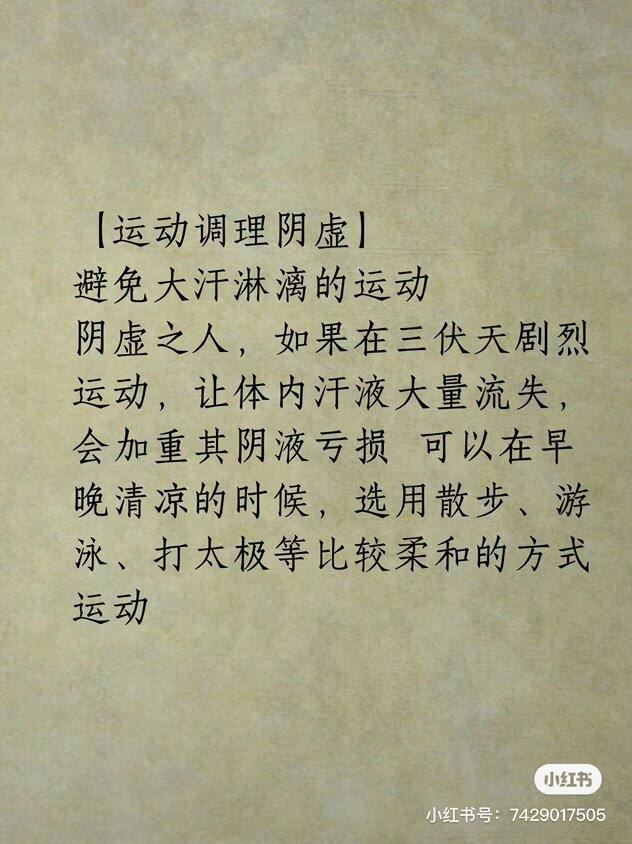 【运动调理阴虚】
避免大汗淋漓的运动
阴虚之人，如果在三伏天剧烈
运动，让体内汗液大量流失，
会加重其阴液亏损 可以在早
晚清凉的时候，选用散步、游
泳、打太极等比较柔和的方式
运动
小红书
小红书号：7429017505